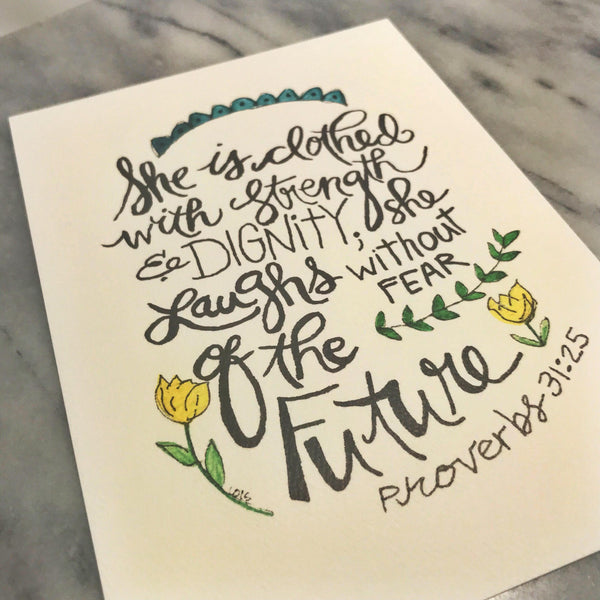 She is clothed
with strength
& DIGNITY; she
Laughs without
FEAR
of the
Future
Proverbs 31:25